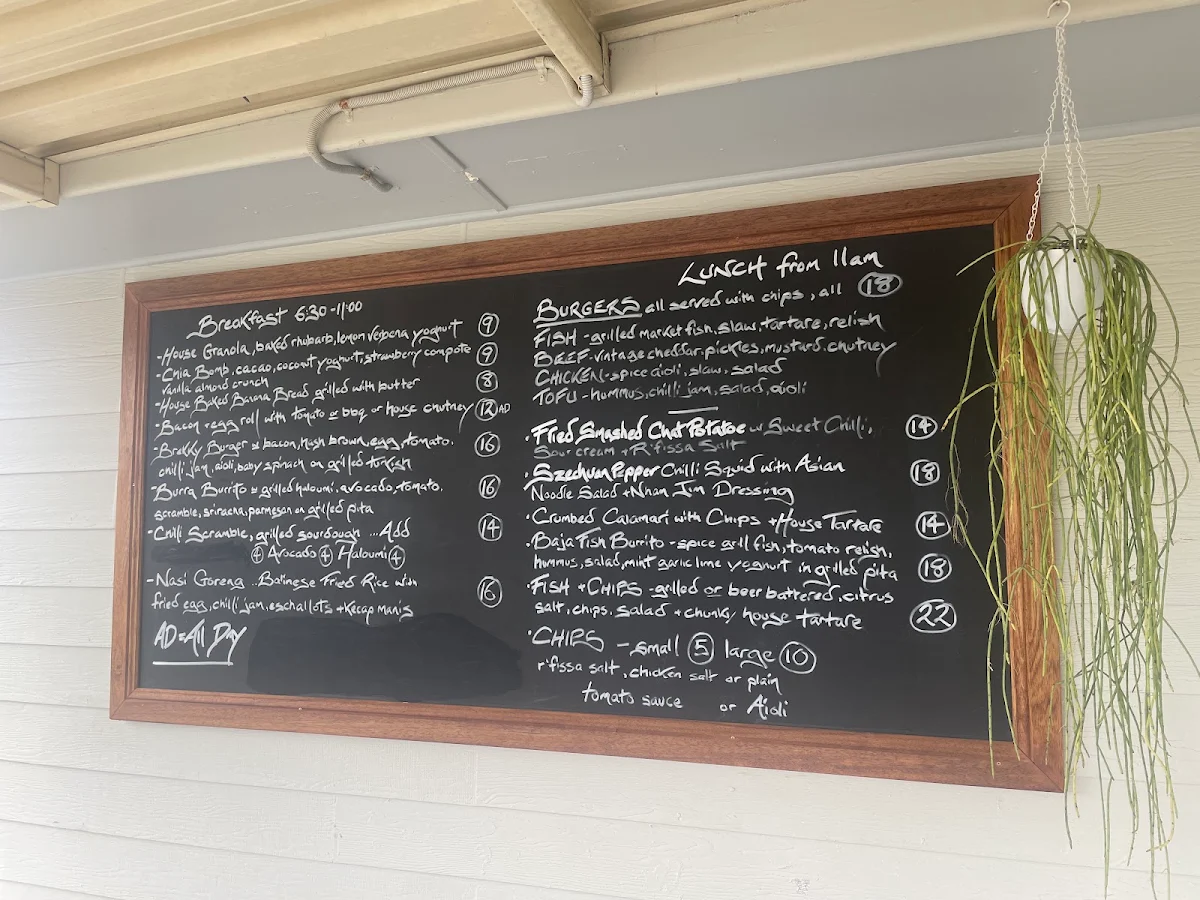 Breakfast 6:30-11:00
-House Granola, baked rhubarb, lemon verbena yoghurt 9
-Chia Bomb, cacao, coconut yoghurt, strawberry compote 9
vanilla almond crunch
-House Baked Banana Bread grilled with butter 8
-Bacon + egg roll with tomato or bbq or house chutney 12 AD
-Brekky Burger w bacon, hash brown, egg, tomato, 16
chilli jam, aioli, baby spinach on grilled turkish
-Burra Burrito w grilled haloumi, avocado, tomato, 16
scramble, sriracha, parmesan on grilled pita
-Chilli Scramble, grilled sourdough ... Add 14
4 Avocado 4 Haloumi 4
-Nasi Goreng .. Balinese Fried Rice with 16
fried egg, chilli jam, eschallots + kecap manis
AD=All Day
LUNCH from 11am
BURGERS all served with chips, all 18
FISH -grilled market fish, slaw, tartare, relish
BEEF-vintage cheddar, pickles, mustard, chutney
CHICKEN-spice aioli, slaw, salad
TOFU-hummus, chilli jam, salad, aioli
·Fried Smashed Chat Potatoe w Sweet Chilli, 14
Sour cream + R'fissa Salt
·Szechuan Pepper Chilli Squid with Asian 18
Noodle Salad + Nhan Jim Dressing
·Crumbed Calamari with Chips + House Tartare 14
·Baja Fish Burrito - spice grill fish, tomato relish,
hummus, salad, mint garlic lime yoghurt in grilled pita 18
·FISH + CHIPS -grilled or beer battered, citrus
salt, chips, salad + chunky house tartare 22
·CHIPS - small 5 large 10
r'fissa salt, chicken salt or plain
tomato sauce or Aioli